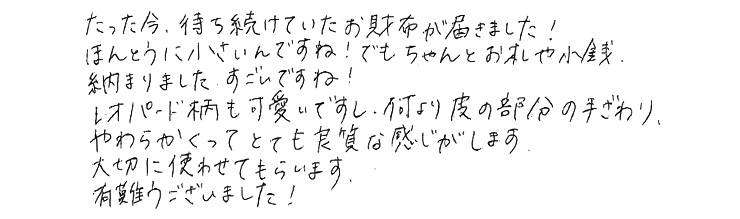 たった今、待ち続けていたお財布が届きました！
ほんとうに小さいんですね！でもちゃんとお札や小銭、
納まりました。すごいですね！
レオパード柄も可愛いですし、何より皮の部分の手ざわり、
やわらかくってとても良質な感じがします。
大切に使わせてもらいます。
有難うございました！